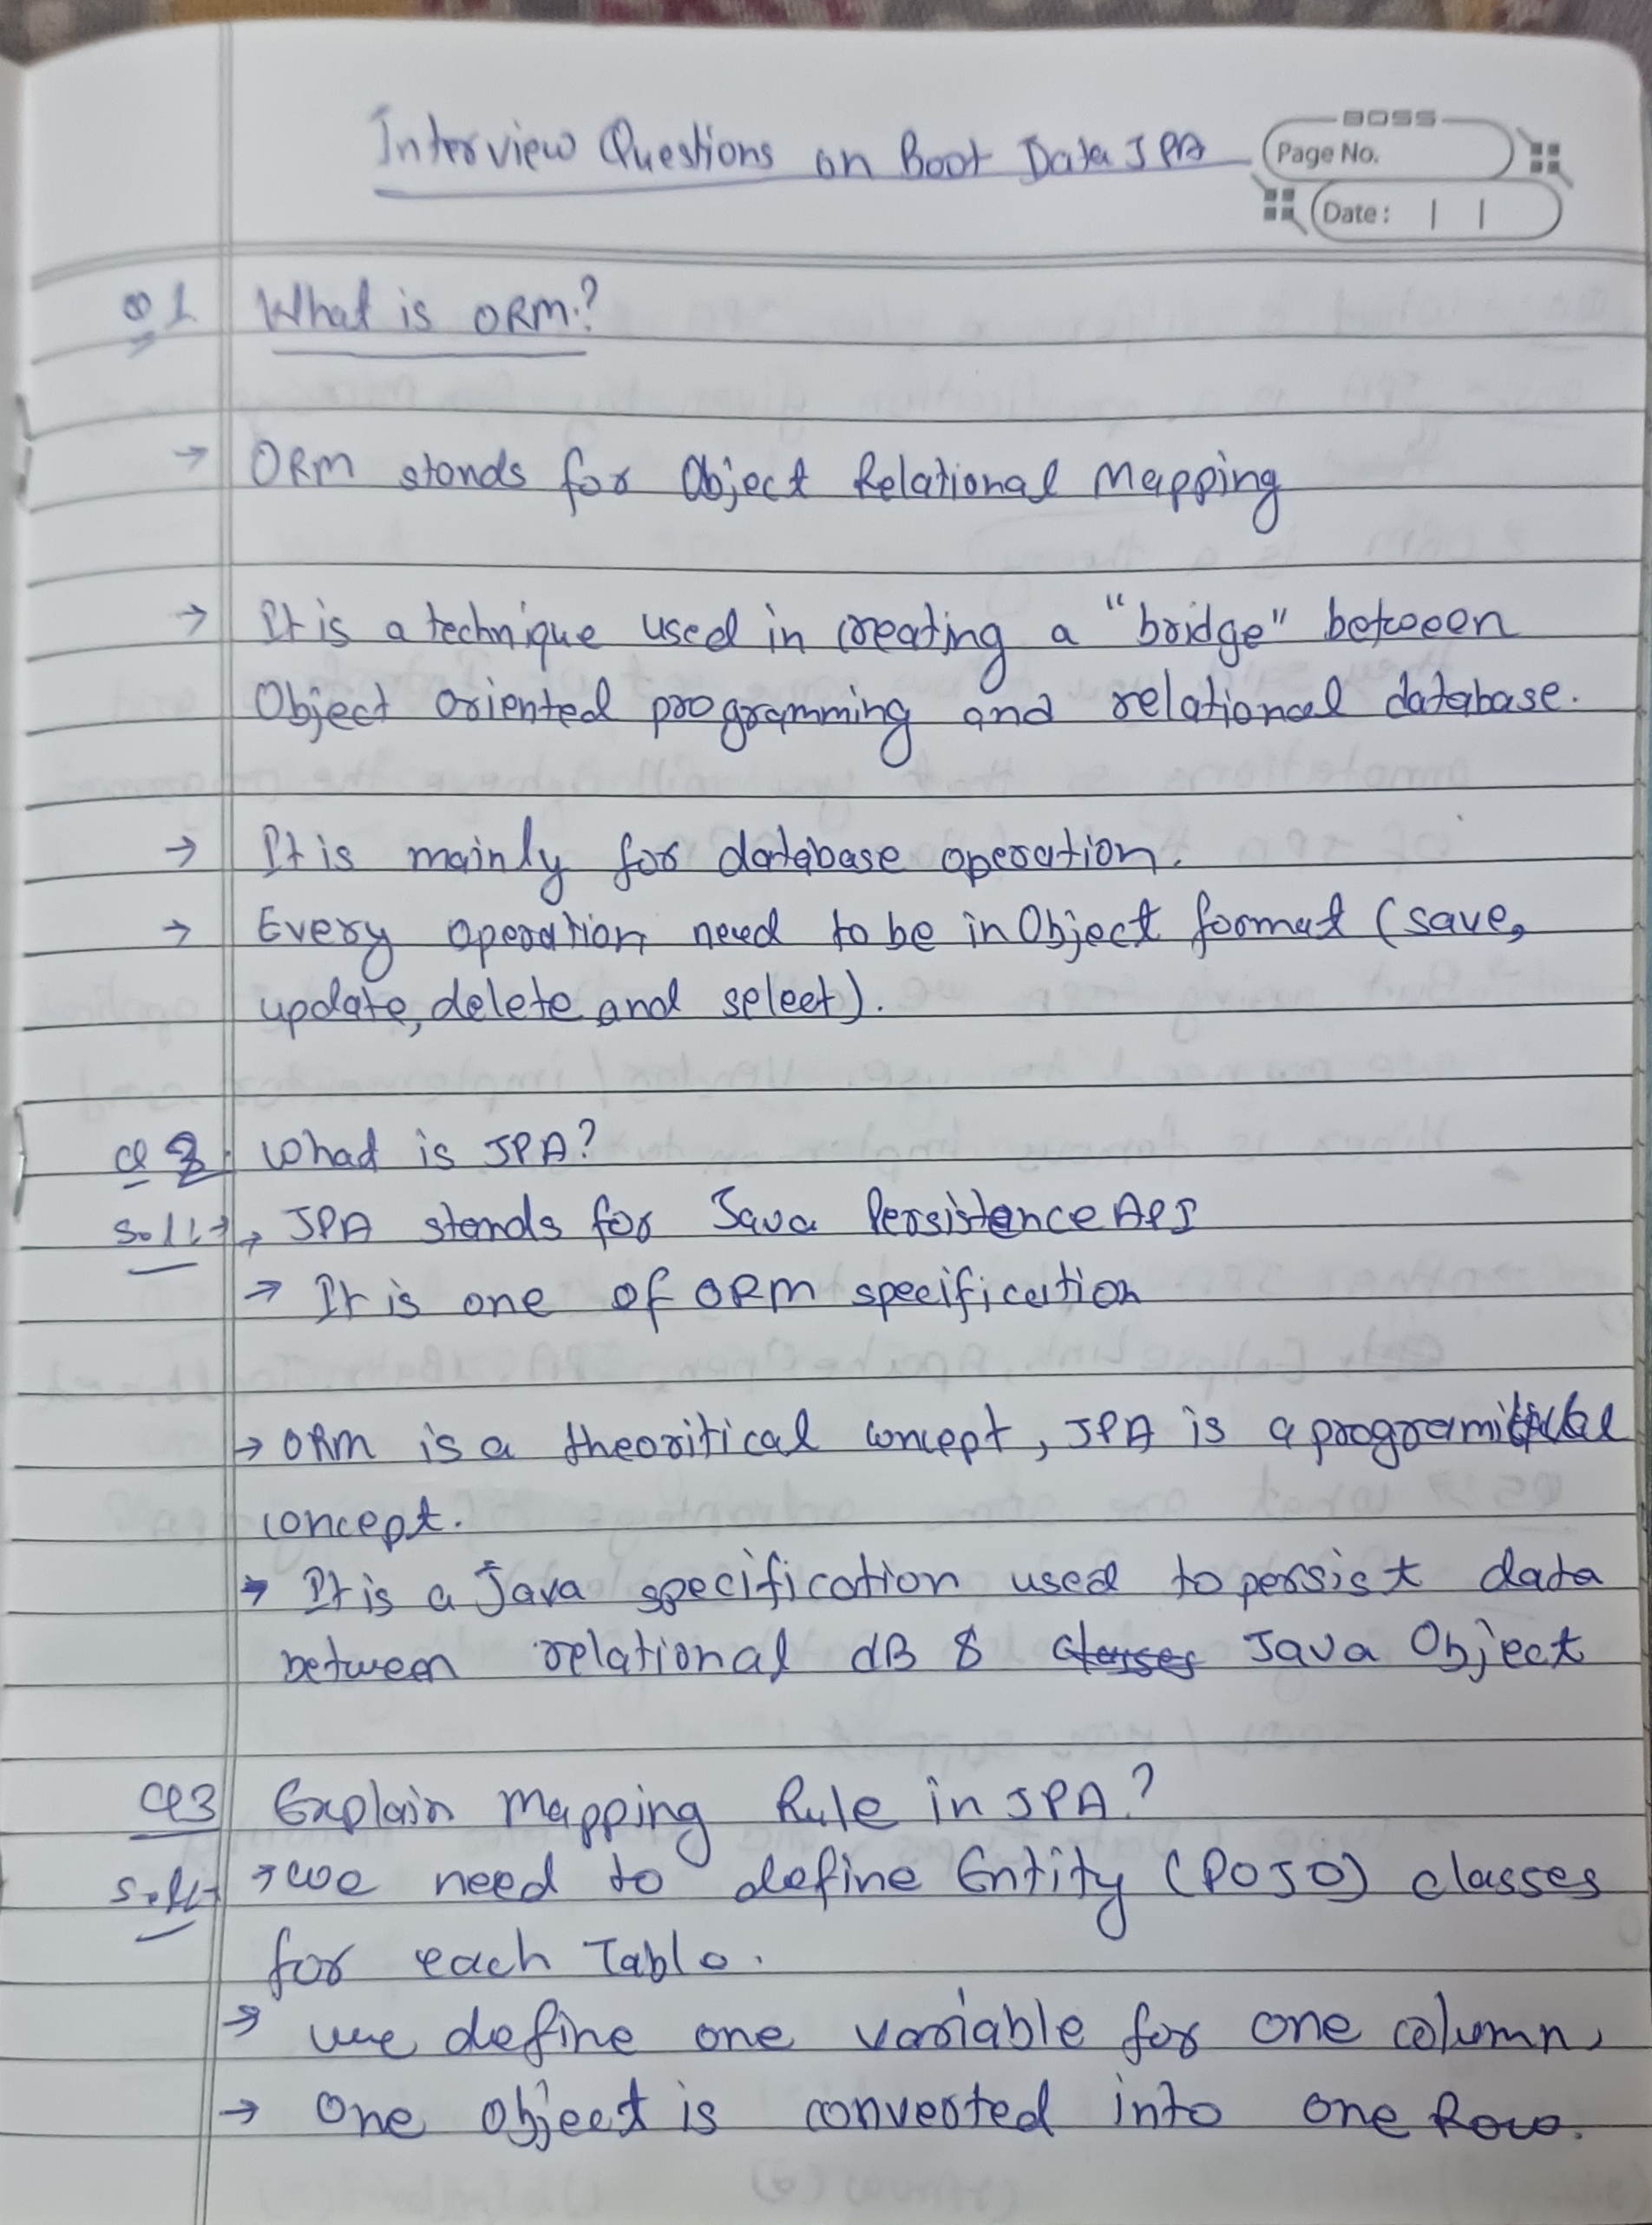 Interview Questions on Boot Data JPA
BOSS
Page No.
Date: | |
Q1 What is ORM.?
→ ORM stands for Object Relational Mapping
→ It is a technique used in creating a "bridge" between
Object oriented programming and relational database.
→ It is mainly for database operation.
→ Every operation need to be in Object format (save,
update, delete and select).
Q2 What is JPA?
Sol:→ → JPA stands for Java Persistence API
→ It is one of ORM specification
→ ORM is a theoritical concept, JPA is a
concept.
→ It is a Java specification used to persist data
between relational dB & classes Java Object
Q3 Explain Mapping Rule in JPA?
Sol:→ → we need to define Entity (POJO) classes
for each Table.
→ we define one variable for one column,
→ One object is converted into one Row.